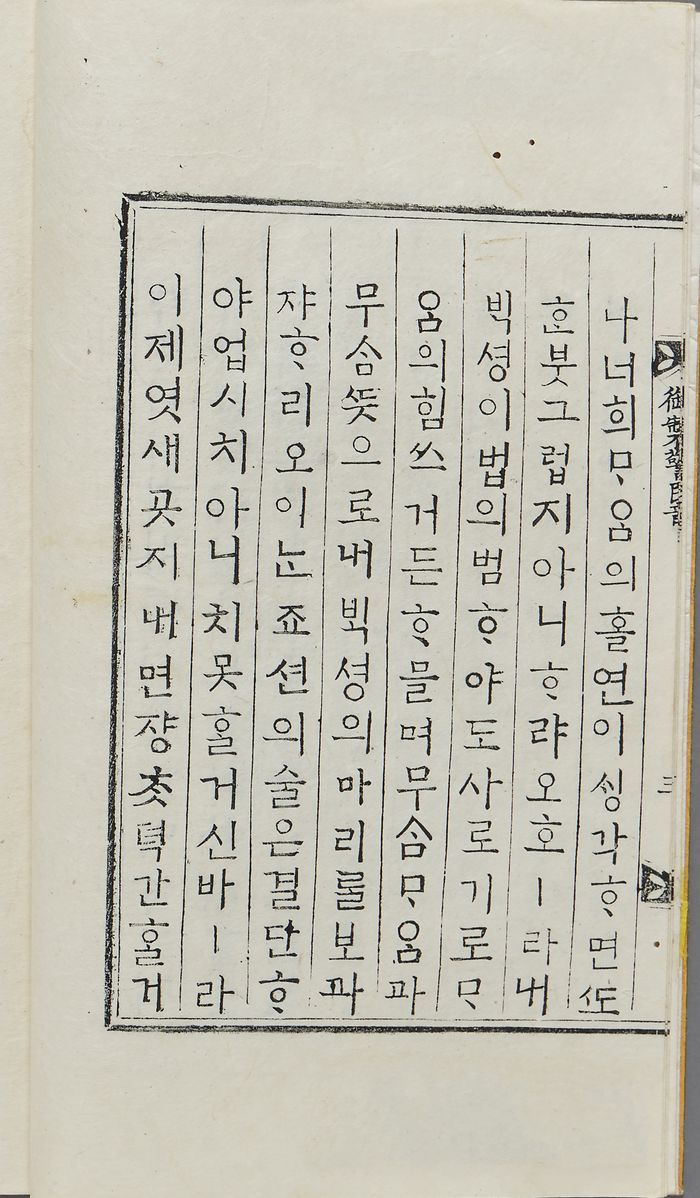 나너희ᄆᆞᄋᆞᆷ의홀연이ᄉᆡᆼ각ᄒᆞ면ᄯᅩ
ᄒᆞᆫ붓그럽지아니ᄒᆞ랴오호ㅣ라내
ᄇᆡᆨ셩이법의범ᄒᆞ야도사로기로ᄆᆞ
ᄋᆞᆷ의힘ᄡᅳ거든ᄒᆞ믈며무ᄉᆞᆷᄆᆞᄋᆞᆷ과
무ᄉᆞᆷᄯᅳᆺ으로내ᄇᆡᆨ셩의마리ᄅᆞᆯ보과
쟈ᄒᆞ리오이ᄂᆞᆫ죠션의술은결단ᄒᆞ
야업시치아니치못ᄒᆞᆯ거신바ㅣ라
이제엿새ᄭᅩᆺ지내면쟝ᄎᆞᆺ텩간ᄒᆞᆯ거
三